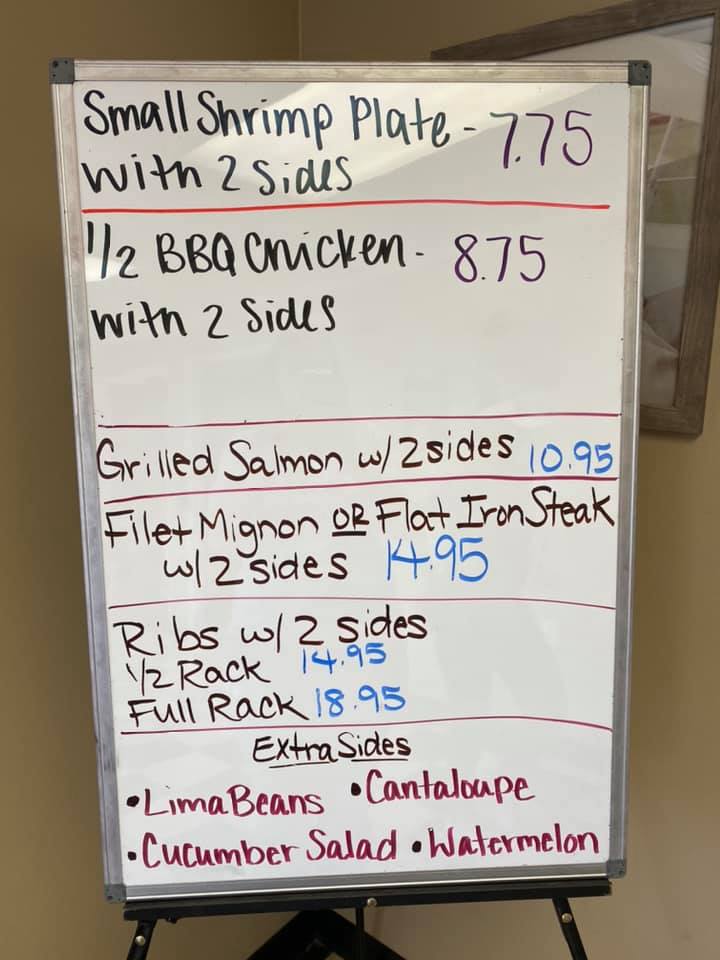 Small Shrimp Plate - 7.75
with 2 Sides
1/2 BBQ Chicken - 8.75
with 2 Sides
Grilled Salmon w/ 2 sides 10.95
Filet Mignon OR Flat Iron Steak
w/ 2 sides 14.95
Ribs w/ 2 sides
1/2 Rack 14.95
Full Rack 18.95
Extra Sides
• Lima Beans • Cantaloupe
• Cucumber Salad • Watermelon